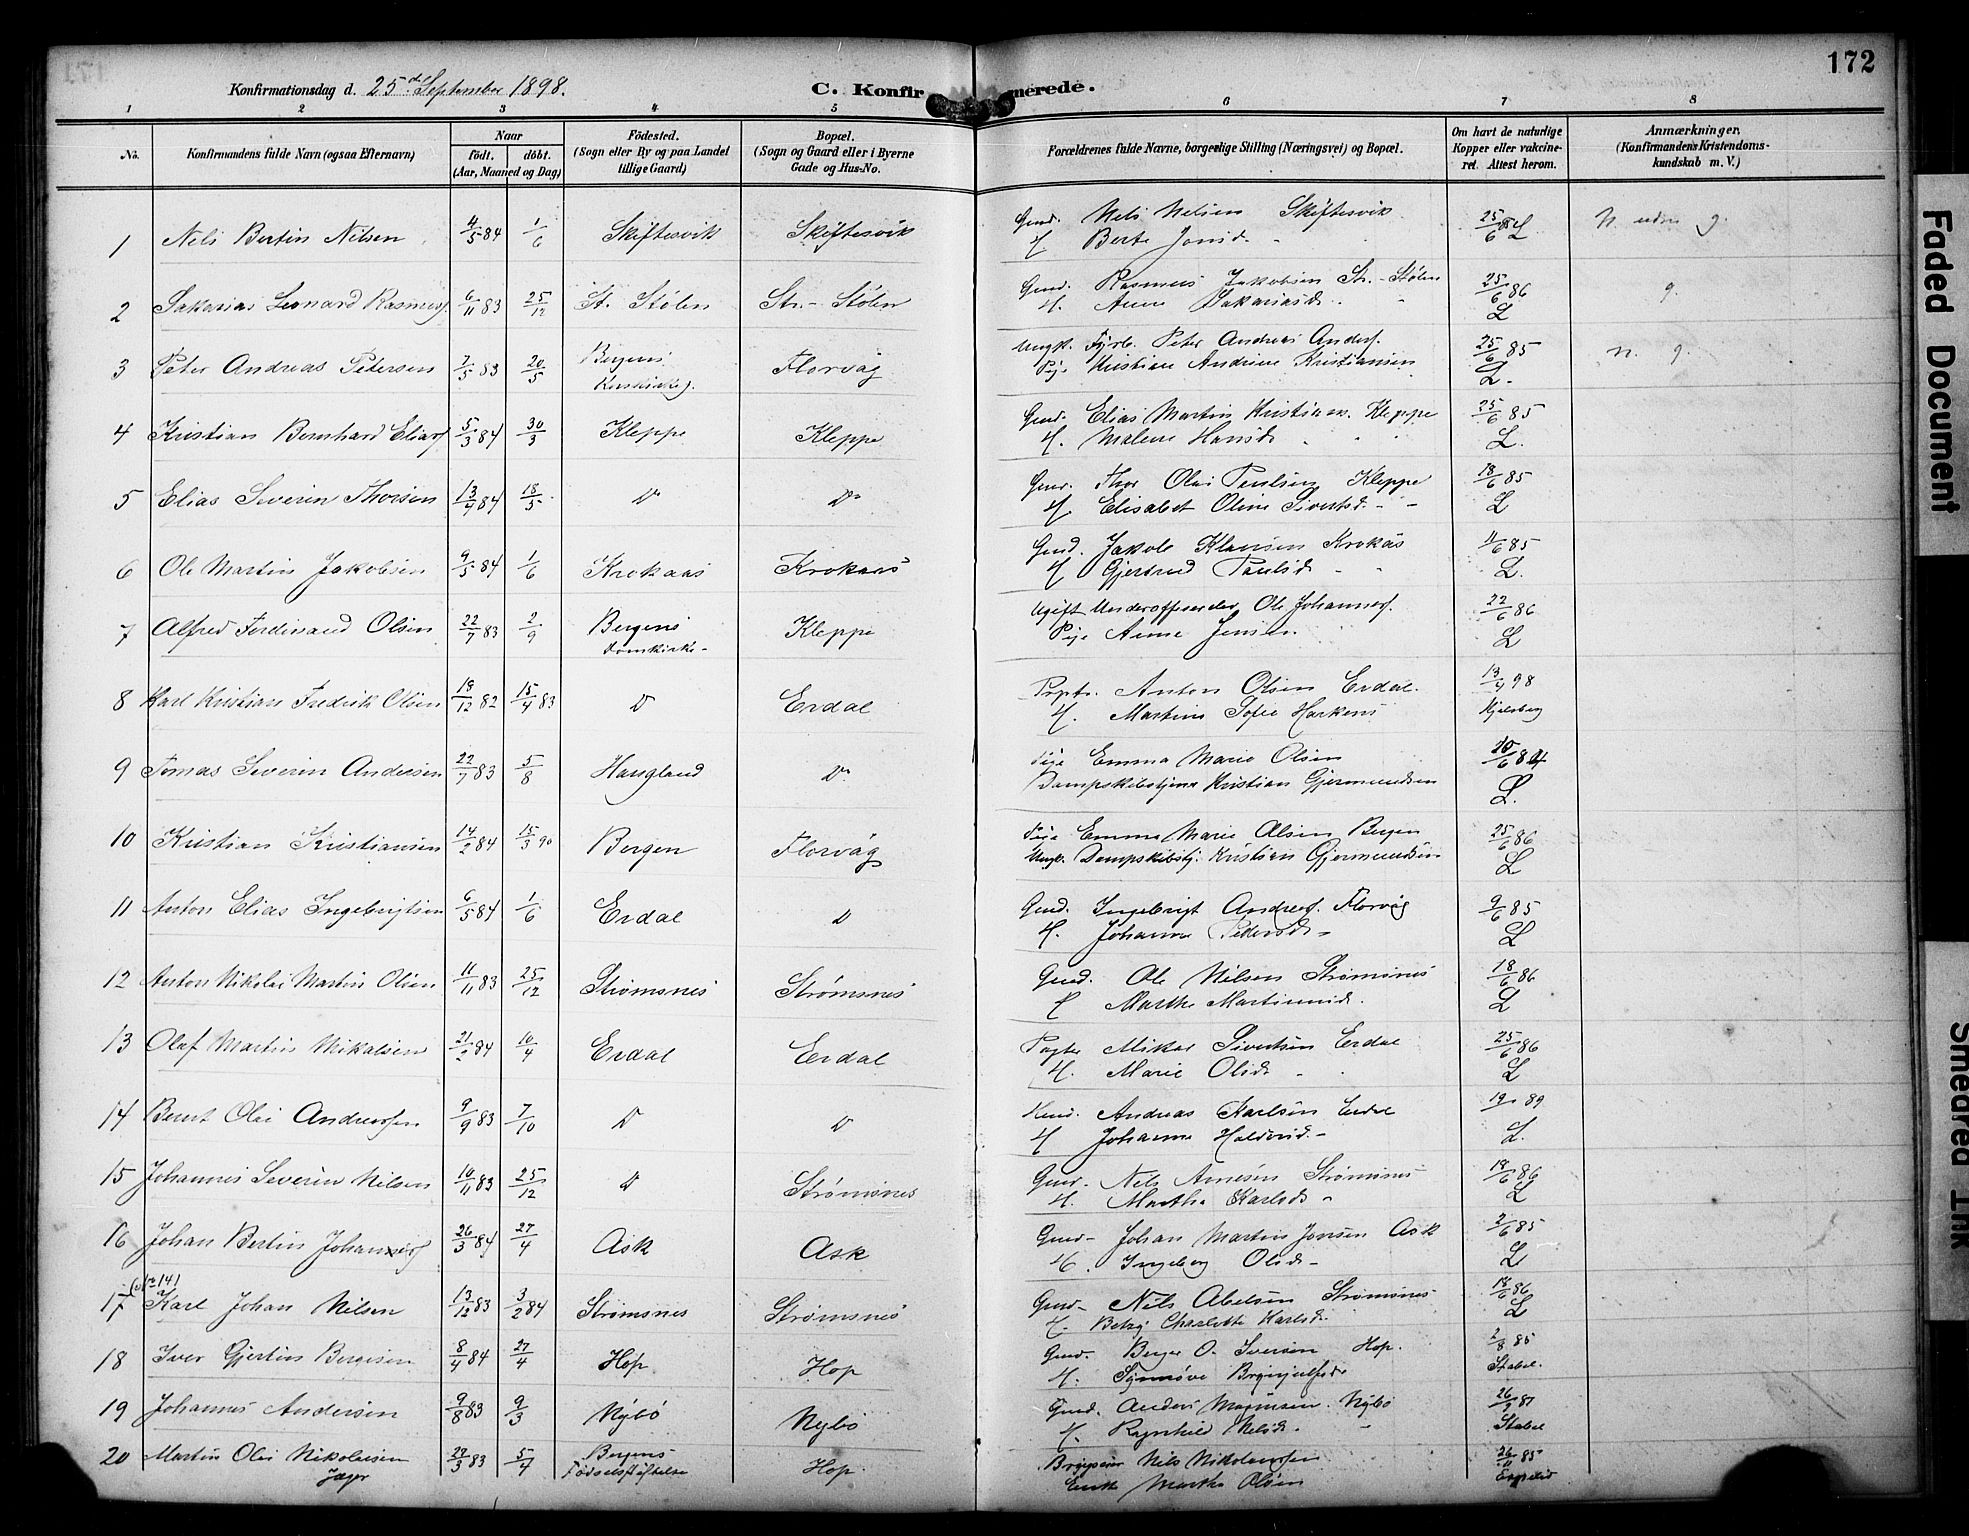 172
Konfirmationsdag d. 25de September 1898.
C. Konfirmerede.
1 2 3 4 5 6 7 8
No.
Konfirmandens fulde Navn (ogsaa Efternavn)
Naar
födt. döbt.
(Aar, Maaned og Dag)
Födested.
(Sogn eller By og paa Landet
tillige Gaard)
Bopæl.
(Sogn og Gaard eller i Byerne
Gade og Hus-No.
Forældrenes fulde Navne, borgerlige Stilling (Næringsvei) og Bopæl.
Om havt de naturlige
Kopper eller vakcine-
ret. Attest herom.
Anmærkninger,
(Konfirmandens Kristendoms-
kundskab m. V.)
1 Nels Bertin Nilsen 4/5 84 1/6 Skiftesvik Skiftesvik Gmd. Nels Nelsen Skiftesvik 25/6 N. uden g.
H. Berte Jonsd. L
2 Sakarias Leonard Rasmusf. 6/11 83 25/12 St. Stølen Str. - Stølen Gmd. Rasmus Jakobsen Str. - Stølen 25/6 86 g.
H. Anne Sakariasd. L
3 Peter Andreas Petersen 7/5 83 20/5 Bergens Korskirkeg. Florvåg Ungk. Fyrb. Peter Andreas Andersf. 25/6 85 n. g.
Pige Kristiane Andrine Kristiansen L.
4 Kristian Bernhard Eliasf. 5/3 84 30/3 Kleppe Kleppe Gmd. Elias Martin Kristians. Kleppe 25/6 85
H. Malene Hansd. L.
5 Elias Severin Thorsen 13/4 84 18/5 Do Do Gmd. Thor Olai Paulsen Kleppe 18/6 85
H. Elisabet Oline Sivertsd. L
6 Ole Martin Jakobsen 9/5 84 1/6 Krokaas Krokaas Gmd. Jakob Klausen Krokås 11/6 85
H Gjertrud Paulsd. L.
7 Alfred Ferdinand Olsen 22/7 83 2/9 Bergens Domkirke- Kleppe Ugift Underofficer Ole Johannesf. 22/6 86
Pige Anne Jensen L
8 Karl Kristian Fredrik Olsen 19/12 82 15/4 83 D Erdal Anton Olsen Erdal. 13/4 98
H. Martine Sofie Hjelsberg
9 Tomas Severin Andersen 22/7 83 5/8 Haugland Do Pige Emma Marie Olsen
Dampskibstjener Kristian Gjermundsen L.
10 Kristian Kristiansen 14/2 84 15/3 90 Bergen Florvåg Pige Emma Marie Olsen Bergen 25/6 86
Ungk. Dampskibstj. Kristian Gjermundsen L
11 Anton Elias Ingebrigtsen 6/5 84 1/6 Erdal D Gmd. Ingebrigt Andersf. Florvåg 9/6 85
H. Johanne Pedersd. L
12 Anton Nikolai Martin Olsen 11/11 83 25/12 Strømsnes Strømsnes Gmd. Ole Nilsen Strømsnes 18/6 86
H Marthe Martinusd. L
13 Olaf Martin Mikalsen 21/2 84 10/4 Erdal Erdal Pagter Mikal Sivertsen Erdal 25/6 86
H. Marie Olsd. L
14 Bernt Olai Andreasfen 9/9 83 7/10 D D Andreas Karlsen Erdal 89
H Johanne L.
15 Johannes Severin Nilsen 10/11 83 25/12 D Strømsnes Gmd. Nils Arnesen Strømsnes 18/6 86
H. Martha Karlsd. L
16 Johan Bertin 26/3 84 27/4 Ask Ask Gmd- Johan Martin Jonsen Ask 2/6 85
H. Ingeborg Olsd. L
(No 141
17 Karl Johan Nilsen 13/12 83 3/2 84 Strømsnes Strømsnes Gmd- Nils Abelsen Strømsnes 18/6 86
H. Betzy Charlotte Karlsd. L
18 Iver Gjertin Bergesen 8/4 84 27/4 Hop Hop Gmd. Berge O. Iversen Hop. 2/8 85
H. Synnøve Brynjulfsd. Stabel.
19 Johannes Andersen 9/8 83 9/3 Nybö Nybö Gmd. Anders Magnusen Nybö
H. Ragnhild Nelsd. Stabel
20 Martin Olai Nikolaisen 5/4 Bergens Hop. Nils Nikolaisfen
Jæger Fødselsstiftelse Enke Martha Olsen
Faded Document
Smeared Ink